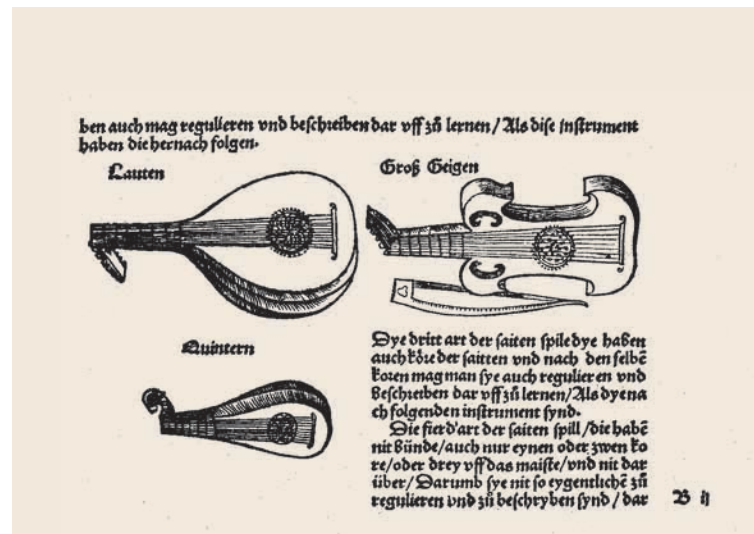 ben auch mag regulieren vnd beschreiben dar vff zů lernen / Als dise instrument
haben die hernach folgen.
Lauten
Groß Geigen
Quintern
Dye dritt art der saiten spile dye haben
auch kőre der saitten vnd nach den selbē
koren mag man sye auch regulieren vnd
beschreiben dar vff zů lernen / Als dye na
ch folgenden instrument synd.
Die fierd' art der saiten spill / die habē
nit bünde / auch nur eynen oder zwen ko
re / oder drey vff das maiste / vnd nit dar
über / Darumb sye nit so eygentlichē zů
regulieren vnd zů beschryben synd / dar
B ij